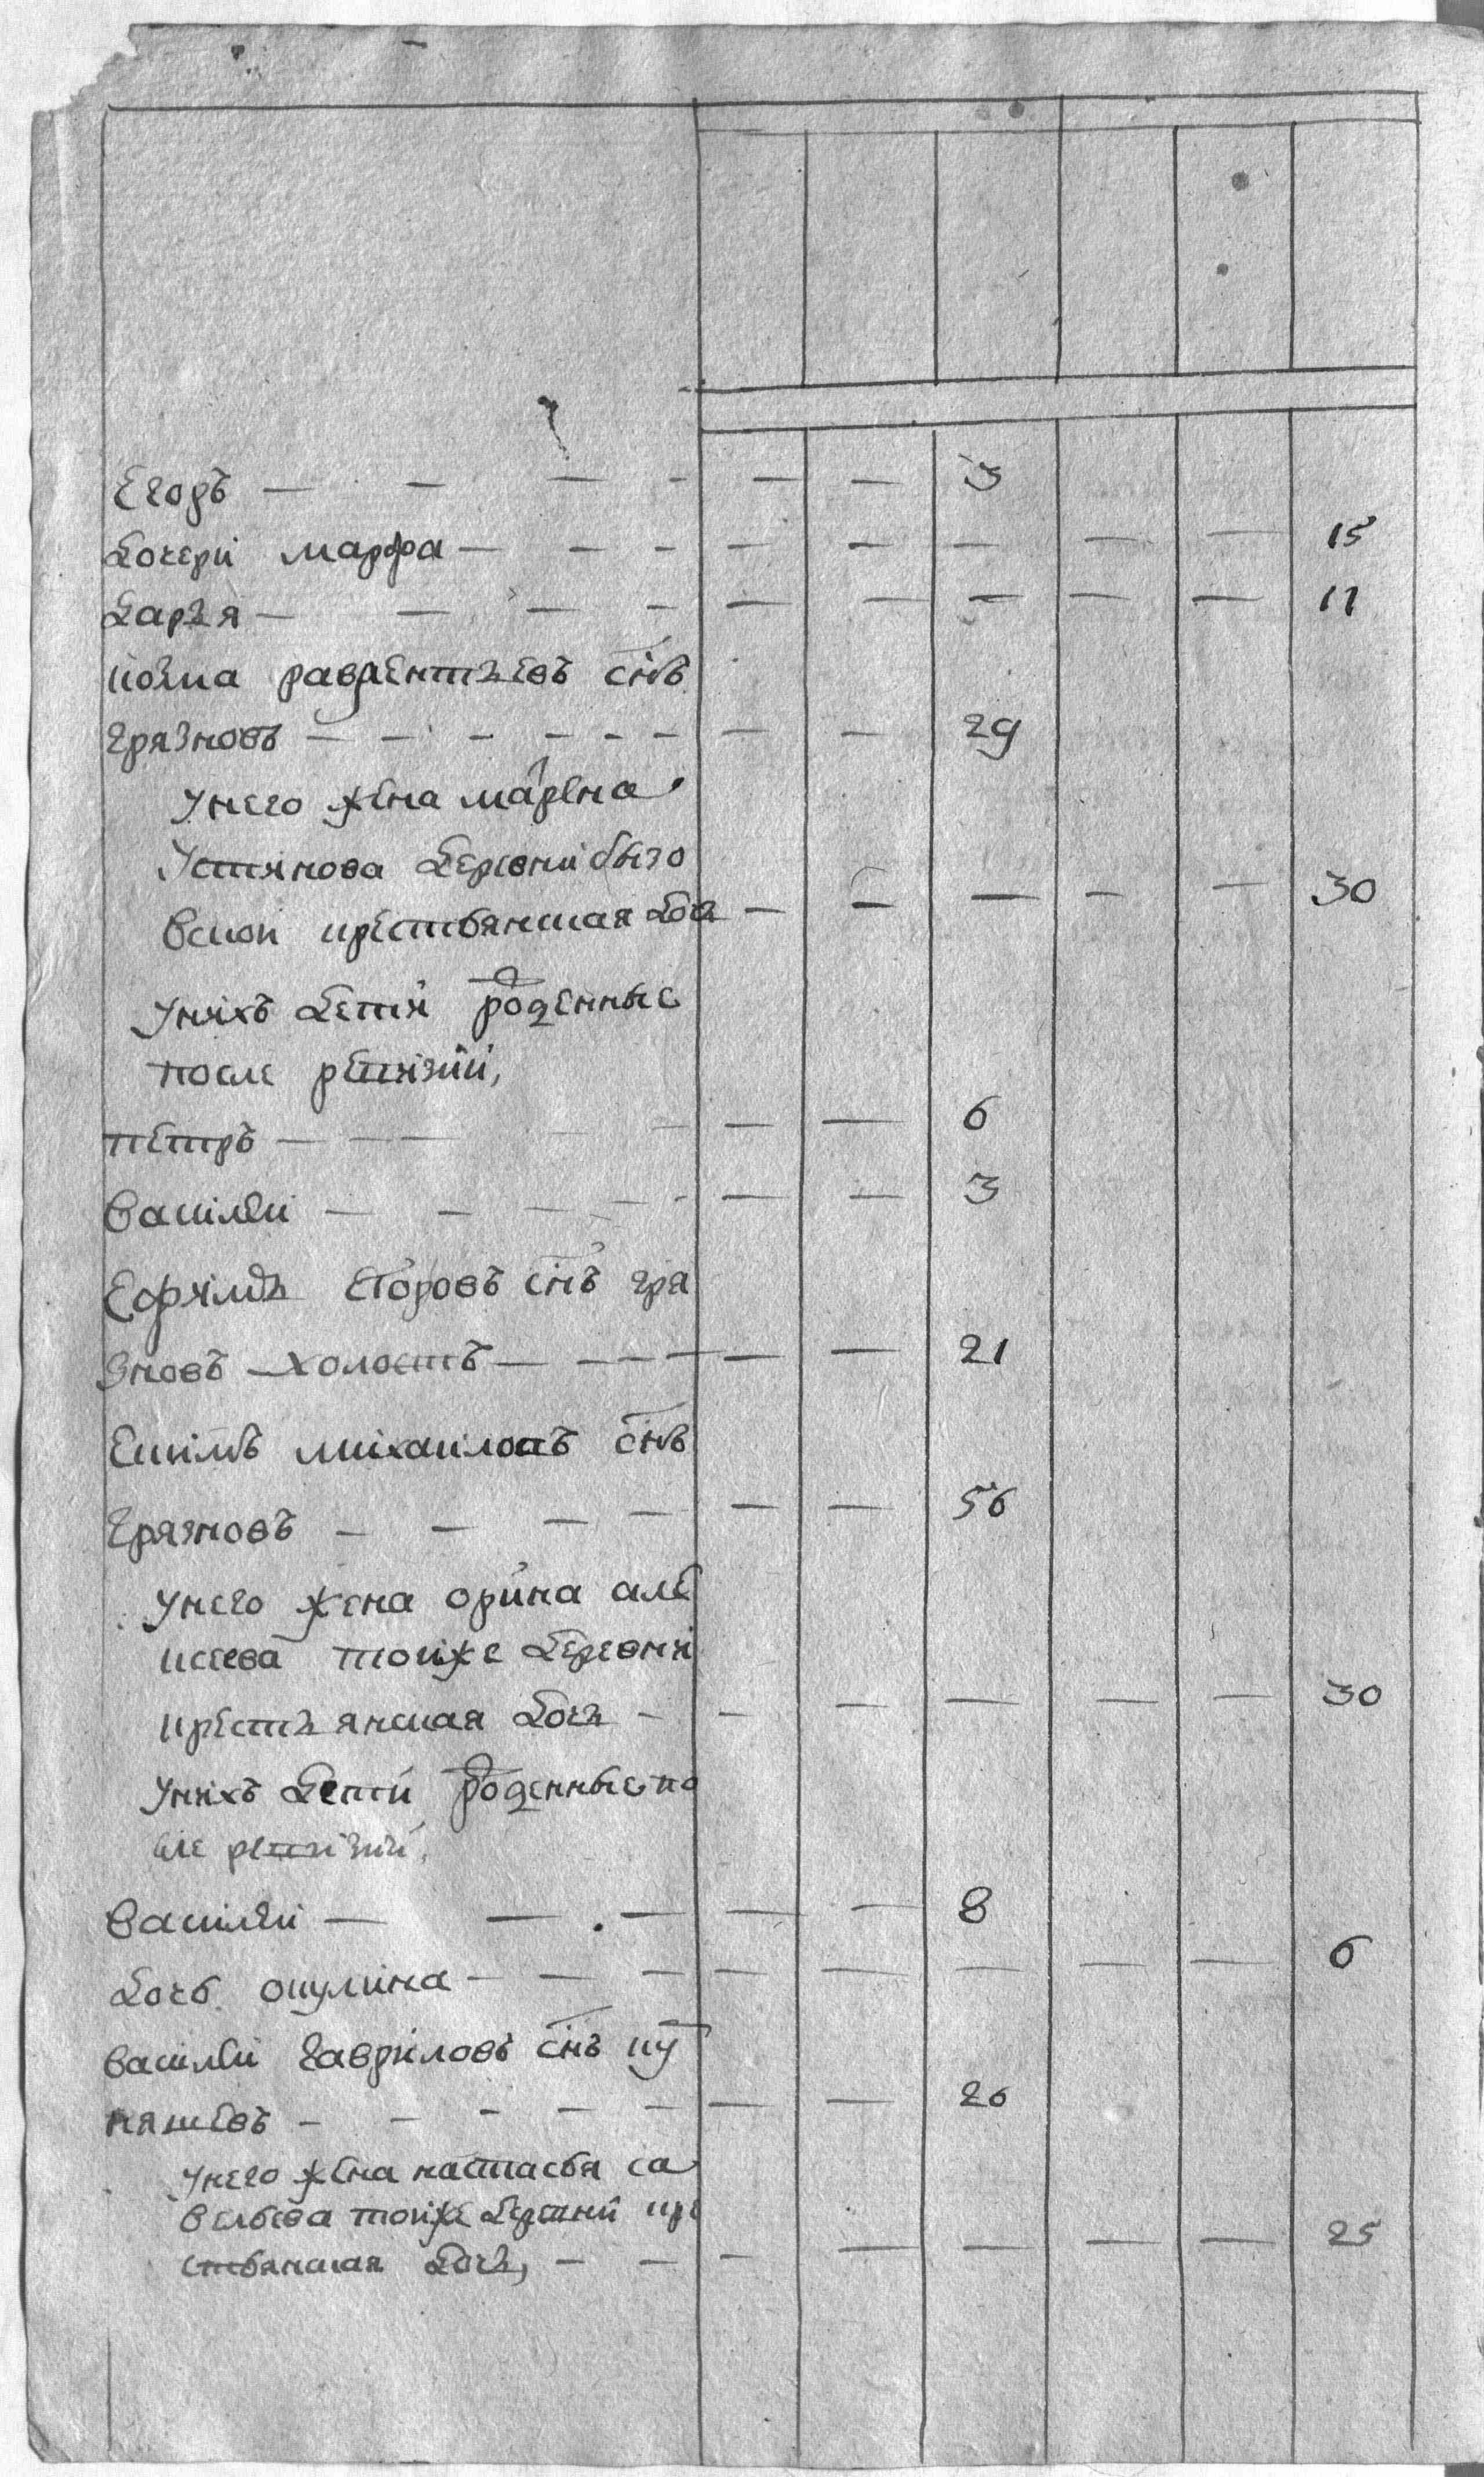 Егоръ — — — — — — 3
дочери марфа — — — — — — — — 15
дарья — — — — — — — — — 11
козма лаврентьевъ снъ
грязновъ — — — — — — — — 29
унего жена марена
Устинова деревни бызо
вскои крестьянская дочь — — — — — 30
унихъ дети роденные
после ревизии,
петръ — — — — — — — 6
василеи — — — — — — 3
Ефимъ Егоровъ снъ гря
зновъ холостъ — — — — — — 21
Екимъ михаиловъ снъ
грязновъ — — — — — — 56
унего жена орина але
ксеева тоиже деревни
крестьянская дочь — — — — — — 30
унихъ дети роденные по
сле ревизии,
василеи — — — — — 8
дочь окулина — — — — — — — — 6
василеи гавриловъ снъ ку
няшевъ — — — — — — — 26
унего жена настасья са
вельева тоиже деревни кре
стьянская дочь, — — — — — — — 25